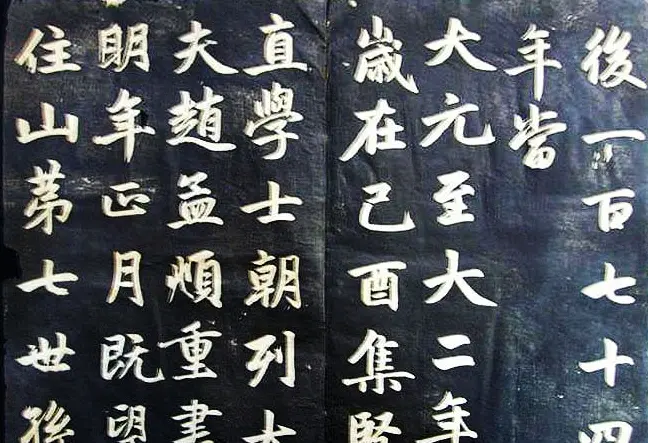 後一百七十四
年當
大元至大二年
歲在己酉集賢
直學士朝列大
夫趙孟頫重書
明年正月既望
住山第七世孫